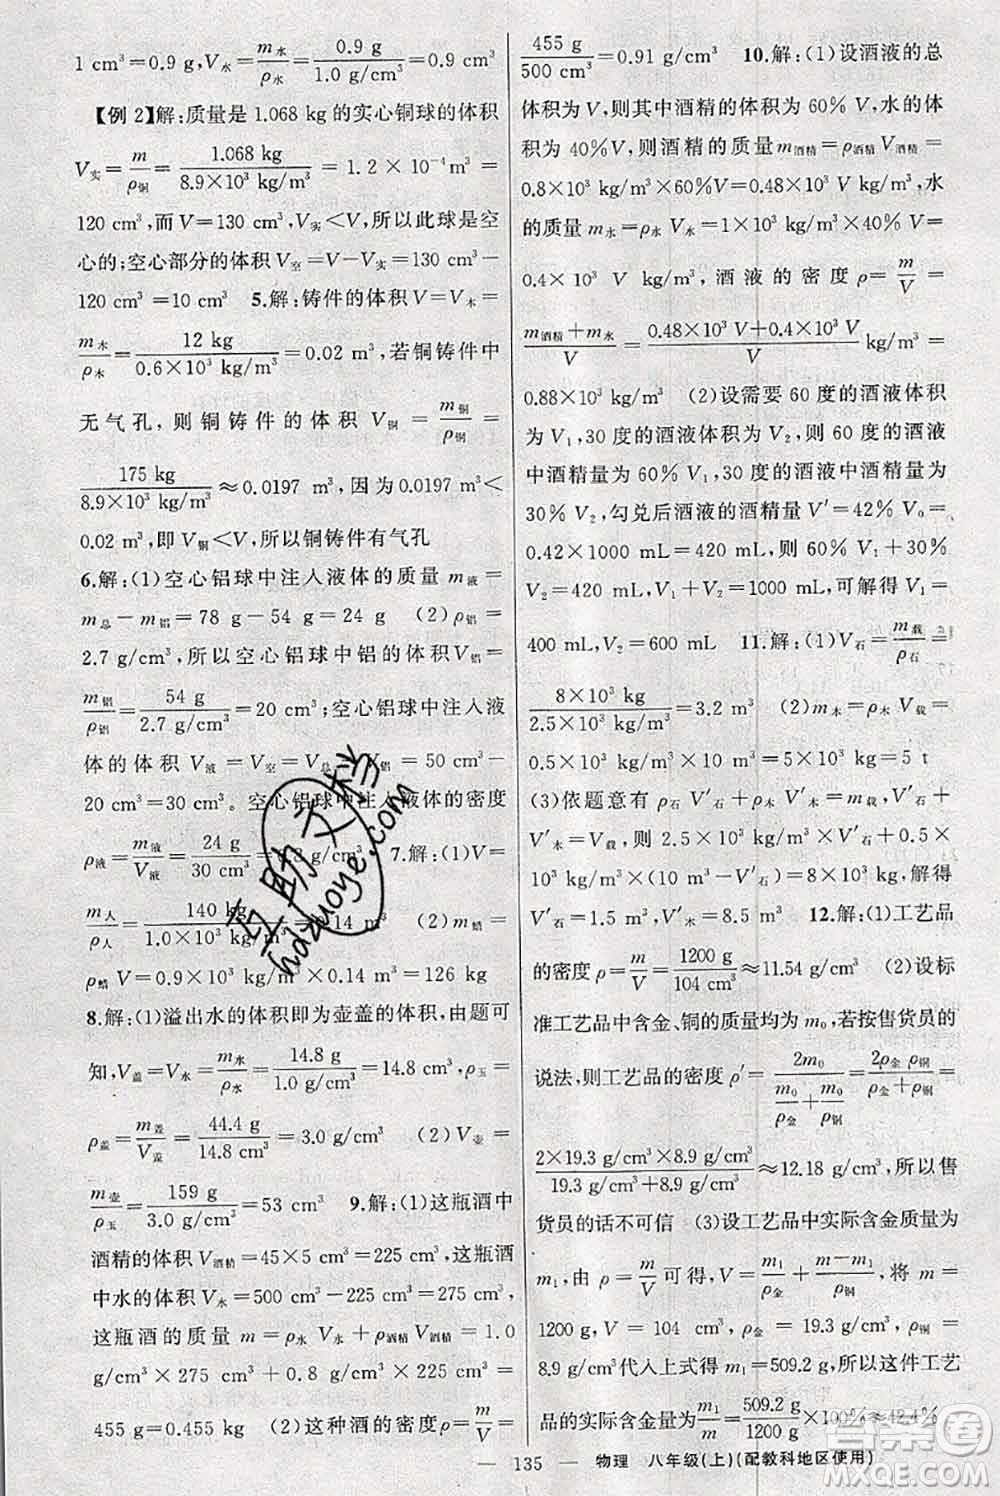 1 cm³=0.9 g, V水=m水/ρ水=0.9 g/1.0 g/cm³=0.9 cm³
【例 2】解:质量是 1.068 kg 的实心铜球的体积
V实=m/ρ铜=1.068 kg/8.9×10³ kg/m³=1.2×10⁻⁴ m³=
120 cm³,而 V=130 cm³,V实<V,所以此球是空
心的;空心部分的体积 V空=V-V实=130 cm³-
120 cm³=10 cm³ 5.解:铸件的体积 V=V木=
m木/ρ木=12 kg/0.6×10³ kg/m³=0.02 m³,若铜铸件中
无气孔,则铜铸件的体积 V铜=m铜/ρ铜=
175 kg/8.9×10³ kg/m³≈0.0197 m³,因为0.0197 m³<
0.02 m³,即 V铜<V,所以铜铸件有气孔
6.解:(1)空心铝球中注入液体的质量 m液=
m总-m铝=78 g-54 g=24 g (2)ρ铝=
2.7 g/cm³,所以空心铝球中铝的体积V铝=
m铝/ρ铝=54 g/2.7 g/cm³=20 cm³;空心铝球中注入液
体的体积 V液=V空=V总-V铝=50 cm³-
20 cm³=30 cm³。空心铝球中注入液体的密度
ρ液=m液/V液=24 g/30 cm³=0.8 g/cm³ 7.解:(1)V=
m人/ρ人=140 kg/1.0×10³ kg/m³=0.14 m³ (2)m蜡=
ρ蜡 V=0.9×10³ kg/m³×0.14 m³=126 kg
8.解:(1)溢出水的体积即为壶盖的体积,由题可
知,V盖=V水=m水/ρ水=14.8 g/1.0 g/cm³=14.8 cm³,ρ玉=
ρ盖=m盖/V盖=44.4 g/14.8 cm³=3.0 g/cm³ (2)V壶=
m壶/ρ玉=159 g/3.0 g/cm³=53 cm³ 9.解:(1)这瓶酒中
酒精的体积V酒精=45×5 cm³=225 cm³,这瓶酒
中水的体积V水=500 cm³-225 cm³=275 cm³,
这瓶酒的质量 m=ρ水 V水+ρ酒精V酒精=1.0
g/cm³×275 cm³+0.8 g/cm³×225 cm³=
455 g=0.455 kg (2)这种酒的密度ρ=m/V=
455 g/500 cm³=0.91 g/cm³ 10.解:(1)设酒液的总
体积为V,则其中酒精的体积为60% V,水的体
积为40%V,则酒精的质量m酒精=ρ酒精V酒精=
0.8×10³ kg/m³×60%V=0.48×10³ V kg/m³,水
的质量 m水=ρ水 V水=1×10³ kg/m³×40% V=
0.4×10³ V kg/m³,酒液的密度ρ=m/V=
m酒精+m水/V=0.48×10³ V+0.4×10³ V/V kg/m³=
0.88×10³ kg/m³ (2)设需要 60 度的酒液体积
为 V₁,30 度的酒液体积为 V₂,则 60 度的酒液
中酒精量为 60% V₁,30 度的酒液中酒精量为
30% V₂,勾兑后酒液的酒精量 V′=42% V₀=
0.42×1000 mL=420 mL,则 60% V₁+30%
V₂=420 mL,V₁+V₂=1000 mL,可解得 V₁=
400 mL,V₂=600 mL 11.解:(1)V石=m载/ρ石=
8×10³ kg/2.5×10³ kg/m³=3.2 m³ (2)m木=ρ木 V载=
0.5×10³ kg/m³×10 m³=5×10³ kg=5 t
(3)依题意有 ρ石 V′石+ρ木 V′木=m载,V′石+
V′木=V载,则 2.5×10³ kg/m³×V′石+0.5×
10³ kg/m³×(10 m³-V′石)=8×10³ kg,解得
V′石=1.5 m³,V′木=8.5 m³ 12.解:(1)工艺品
的密度ρ=m/V=1200 g/104 cm³≈11.54 g/cm³ (2)设标
准工艺品中含金、铜的质量均为 m₀,若按售货员的
说法,则工艺品的密度ρ′=2m₀/(m₀/ρ金+m₀/ρ铜)=2ρ金ρ铜/ρ金+ρ铜=
2×19.3 g/cm³×8.9 g/cm³/19.3 g/cm³+8.9 g/cm³≈12.18 g/cm³,所以售
货员的话不可信 (3)设工艺品中实际含金质量为
m₁,由 ρ=m/V 可得,V=m₁/ρ金+m-m₁/ρ铜,将 m=
1200 g,V=104 cm³,ρ金=19.3 g/cm³,ρ铜=
8.9 g/cm³代入上式得m₁=509.2 g,所以这件工艺
品的实际含金量为m₁/m=509.2 g/1200 g×100%≈42.4%
— 135 — 物理 八年级(上)(配教科地区使用)
互助文档
hdzuoye.com
作业帮
MXQE.COM